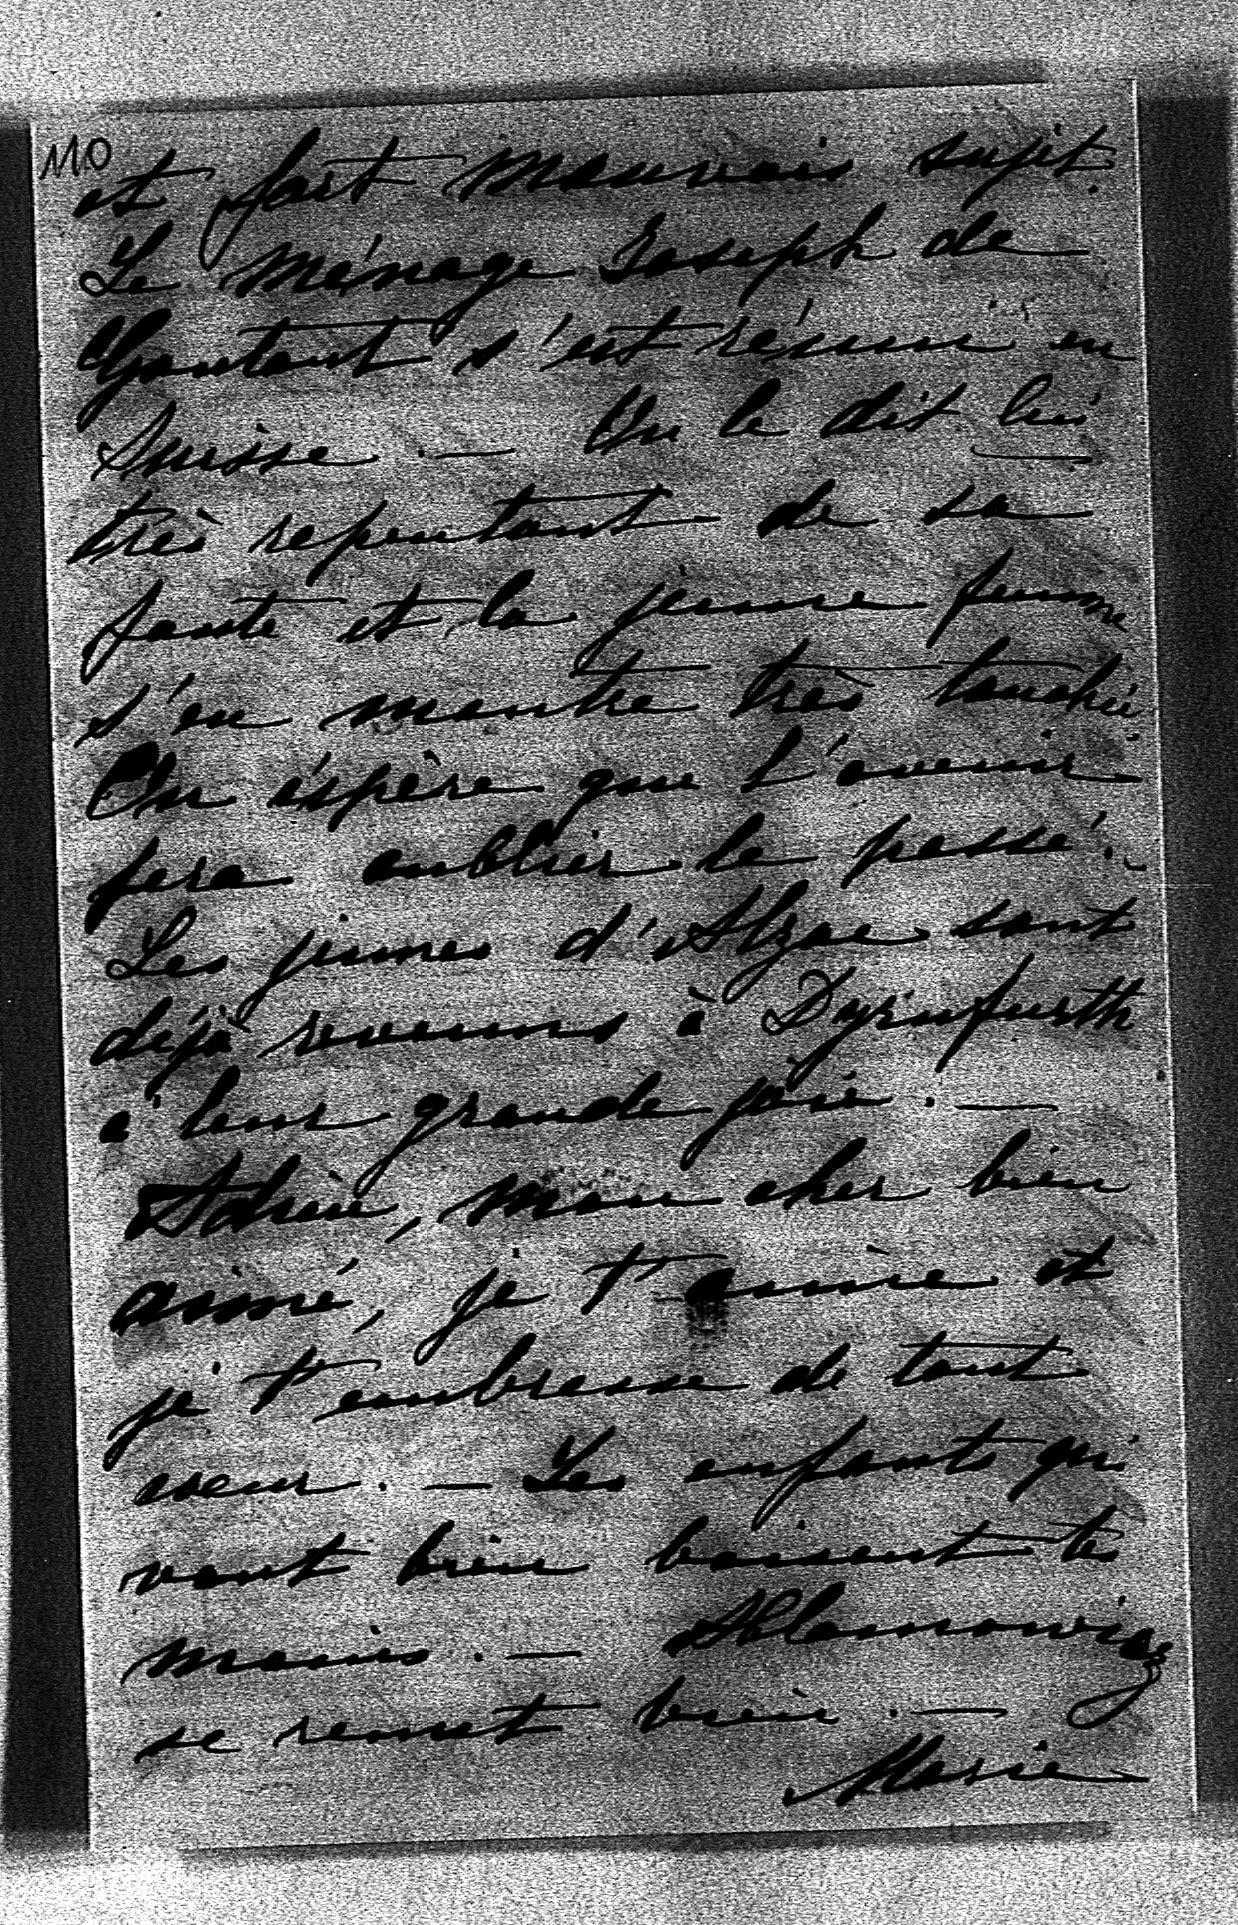 110
et fort mauvais sujet.
Le ménage Joseph de
Gontaut s'est réuni en
Suisse. — On le dit lui
très repentant de sa
faute et la jeune femme
s'en montre très touchée.
On éspère que l'avenir
fera oublier le passé. —
Les jeunes d' sont
déjà revenus à Dyrnfurth
a leur grande joie. —
Adrien, mon cher bien
aimé, je t'aime et
je t'embrasse de tout
coeur. — Les enfants qui
vont bien baisent tes
mains. — Adamowicz
se remet bien. —
Marie